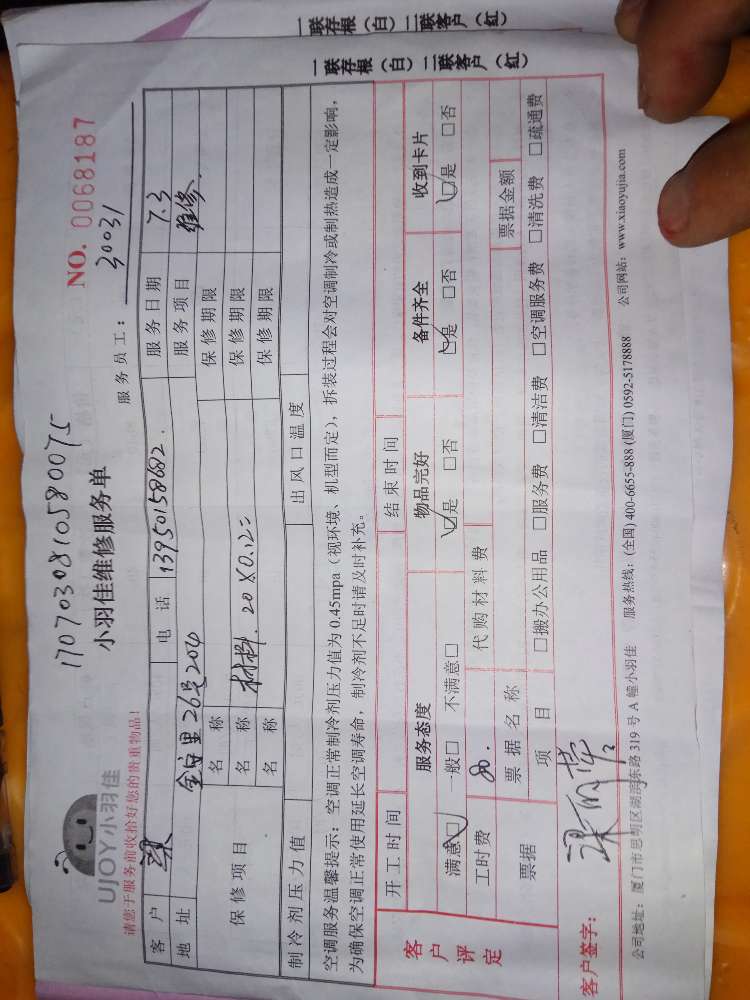 一联存根（白）二联客户（红）
一联存根（白）二联客户（红）
NO. 0068187
1707030810580075
UJOY小羽佳
小羽佳维修服务单
服务员工： 30031
请您于服务前收拾好您的贵重物品！
客户 梁 电话 13950158682. 服务日期 7.3
地址 金安里26号204 服务项目 维修.
保修项目 名称 保修期限
名称 材料. 20×0.12= 保修期限
名称 保修期限
制冷剂压力值 出风口温度
空调服务温馨提示：空调正常制冷剂压力值为 0.45mpa（视环境、机型而定），拆装过程会对空调制冷或制热造成一定影响，
为确保空调正常使用延长空调寿命，制冷剂不足时请及时补充。
开工时间 结束时间
客户评定 服务态度 物品完好 备件齐全 收到卡片
满意☑ 一般□ 不满意□ ☑是 □否 ☑是 □否 ☑是 □否
工时费 80. 代购材料费
票据 票据名称 票据金额
项目 □搬办公用品 □服务费 □清洁费 □空调服务费 □清洗费 □疏通费
客户签字：
公司地址：厦门市思明区湖滨东路 319 号 A 幢小羽佳 服务热线：(全国) 400-6655-888 (厦门) 0592-5178888 公司网站：www.xiaoyujia.com